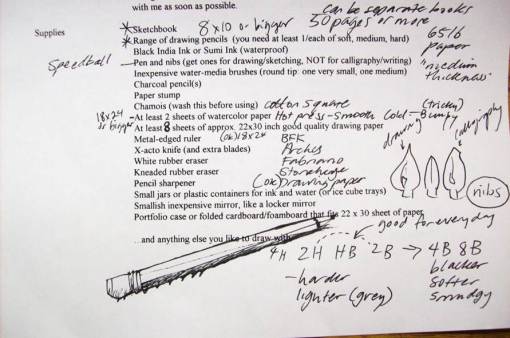 with me as soon as possible.
can be separate books
Supplies
*Sketchbook 8x10 or bigger 50 pages or more
*Range of drawing pencils (you need at least 1/each of soft, medium, hard)
Black India Ink or Sumi Ink (waterproof)
65 lb paper "medium thickness"
Speedball
Pen and nibs (get ones for drawing/sketching, NOT for calligraphy/writing)
Inexpensive water-media brushes (round tip: one very small, one medium)
Charcoal pencil(s)
Paper stump
Chamois (wash this before using) cotton square
18x24 or bigger
At least 2 sheets of watercolor paper Hot press-smooth Cold-Bumpy (tricky)
At least 8 sheets of approx. 22x30 inch good quality drawing paper
Metal-edged ruler (ok) 18x24 BFK
X-acto knife (and extra blades) Arches
White rubber eraser Fabriano
Kneaded rubber eraser Stonehenge
Pencil sharpener (ok) Drawing paper
drawing
calligraphy
nibs
Small jars or plastic containers for ink and water (or ice cube trays)
Smallish inexpensive mirror, like a locker mirror
Portfolio case or folded cardboard/foamboard that fits 22 x 30 sheet of paper
good for everyday
...and anything else you like to draw with
4H 2H HB 2B → 4B 8B
-harder
lighter (grey)
blacker
softer
smudgy